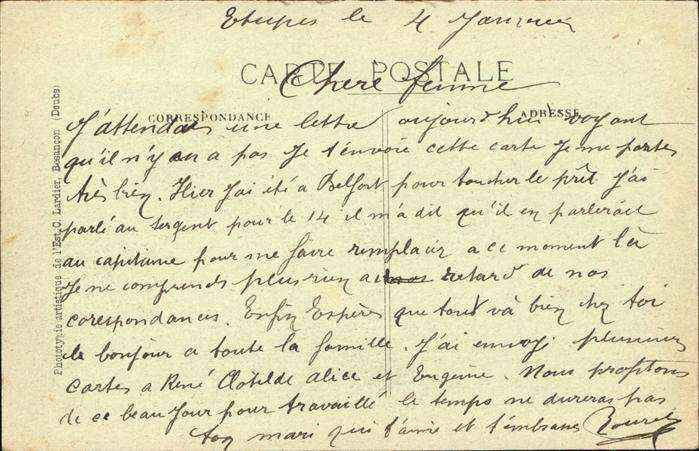 Etupes le 4 Janvier
CARTE POSTALE
Chere femme
CORRESPONDANCE
ADRESSE
J'attendais une lettre aujourd'hui voyant
qu'il n'y en a pas Je t'envoie cette carte Je me portes
très bien. Hier J'ai été a Belfort pour toucher le prêt J'ai
parlé au sergent pour le 14 il m'a dit qu'il en parlerait
au capitaine pour me faire remplacer a ce moment là
Je ne comprends plus rien a retard de nos
corespondances. Enfin Espères que tout và bien chez toi
le bonjour a toute la famille. J'ai envoy plusieurs
cartes a René Clotilde alice et Eugenie. Nous profitons
de ce beau Jour pour travaillé le temps ne dureras pas
ton mari qui t'aime et t'embrasse
Phototypie artistique de l'Est, C. Lardier, Besançon (Doubs)